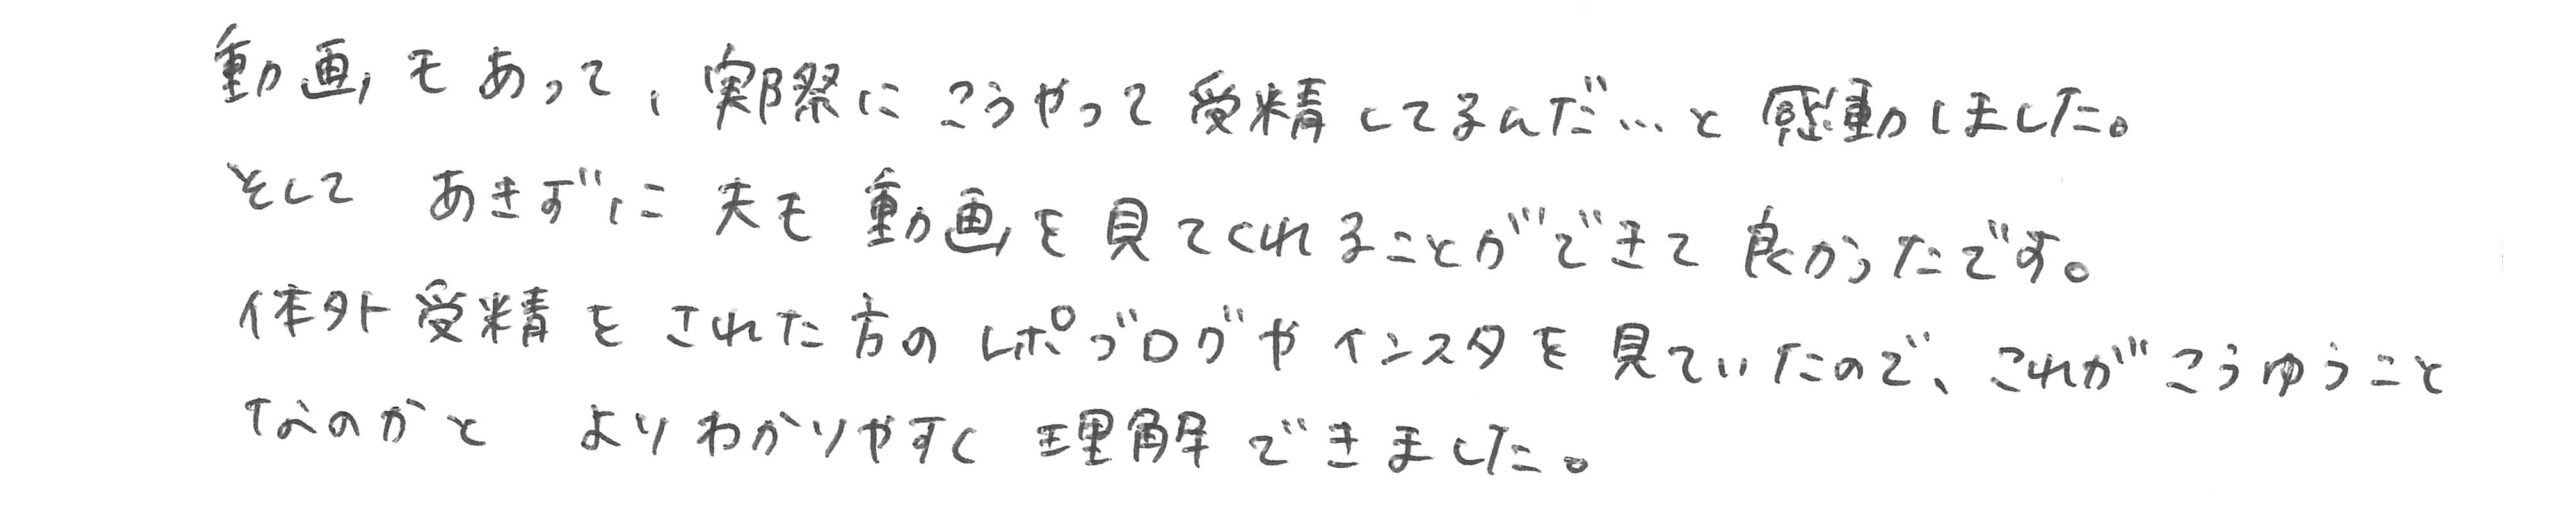 動画もあって、実際にこうやって受精してるんだ…と感動しました。
そして あきずに夫も動画を見てくれることができて良かったです。
体外受精をされた方のレポブログやインスタを見ていたので、これがこうゆうこと
なのかと よりわかりやすく理解できました。